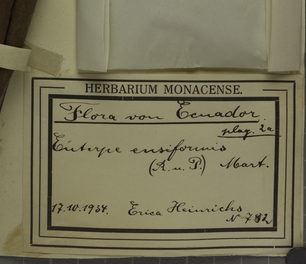 HERBARIUM MONACENSE.
Flora von Ecuador.
plag. 2a
Euterpe ensiformis
(R. u. P.) Mart.
17.10.1934. Erica Heinrichs
N 782